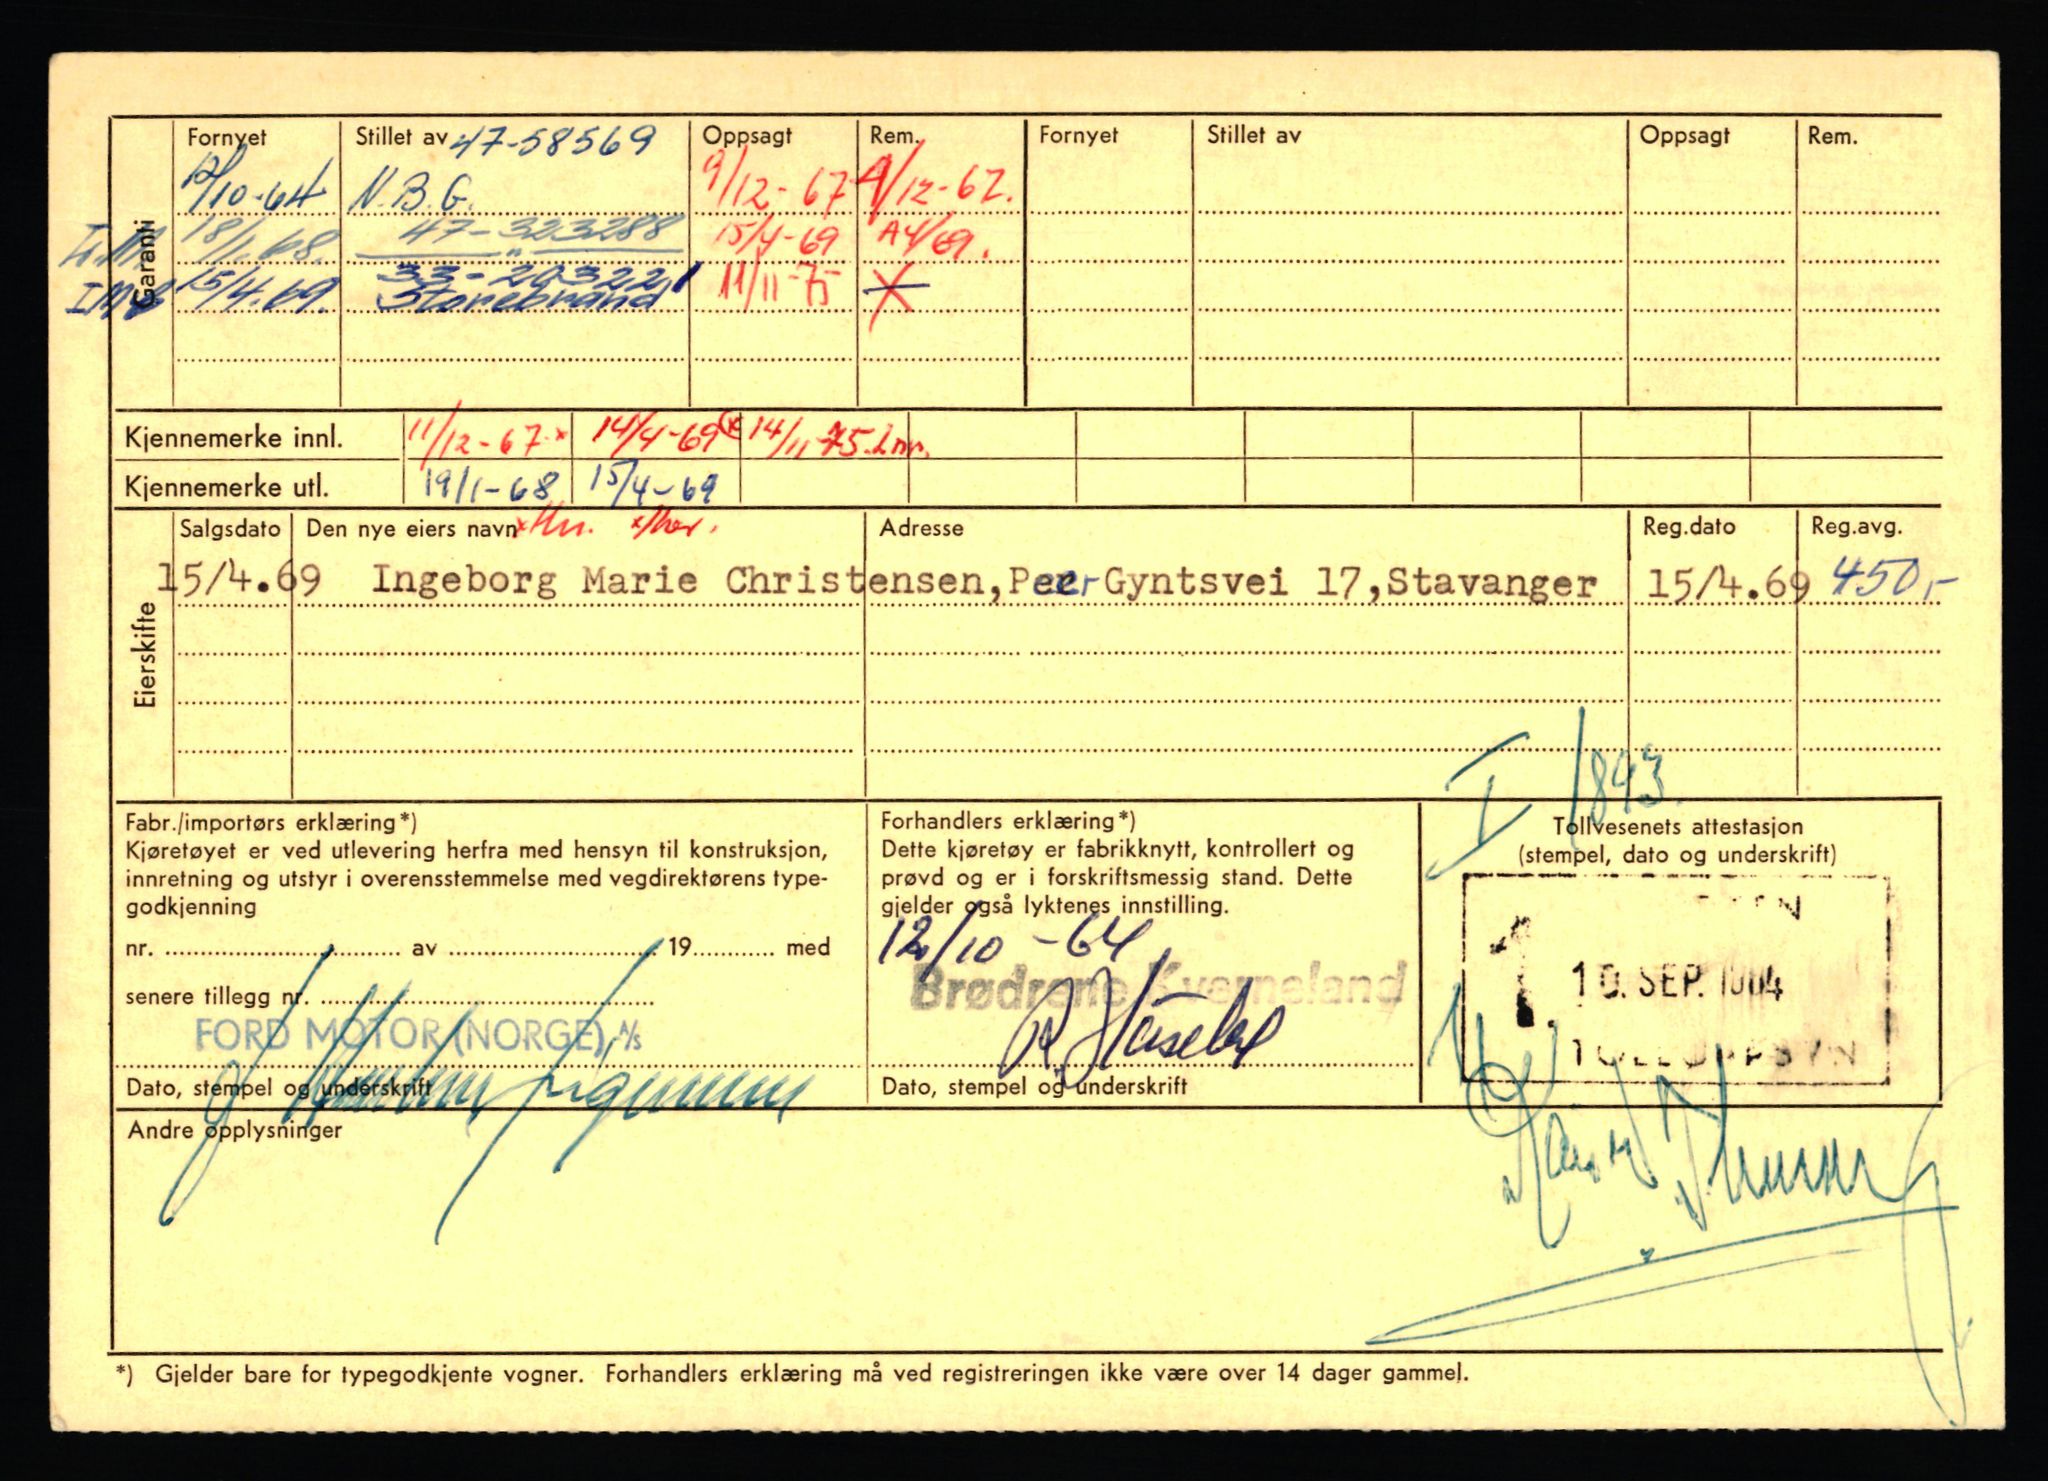 Garanti
Fornyet Stillet av 47-58569 Oppsagt Rem. Fornyet Stillet av Oppsagt Rem.
12/10-64 N.B.G. 9/12-67 9/12-67.
18/1.68. 47-323288 15/4-69 A4/69.
15/4.69. 33-203221 11/11-75 X
Storebrand
Kjennemerke innl. 11/12-67 x 14/4-69 x 14/11-75
Kjennemerke utl. 19/1-68 15/4-69
Eierskifte
Salgsdato Den nye eiers navn Adresse Reg.dato Reg.avg.
15/4.69 Ingeborg Marie Christensen, Peer Gyntsvei 17, Stavanger 15/4.69 450,-
I/1843.
Fabr./importørs erklæring*)
Kjøretøyet er ved utlevering herfra med hensyn til konstruksjon,
innretning og utstyr i overensstemmelse med vegdirektørens type-
godkjenning
nr. av 19 med
senere tillegg nr.
FORD MOTOR (NORGE) A/S
Dato, stempel og underskrift
Forhandlers erklæring*)
Dette kjøretøy er fabrikknytt, kontrollert og
prøvd og er i forskriftsmessig stand. Dette
gjelder også lyktenes innstilling.
12/10-64
Brødrene Kverneland
Dato, stempel og underskrift
Tollvesenets attestasjon
(stempel, dato og underskrift)
10. SEP. 1964
TOLLOPPSYN
Andre opplysninger
*) Gjelder bare for typegodkjente vogner. Forhandlers erklæring må ved registreringen ikke være over 14 dager gammel.